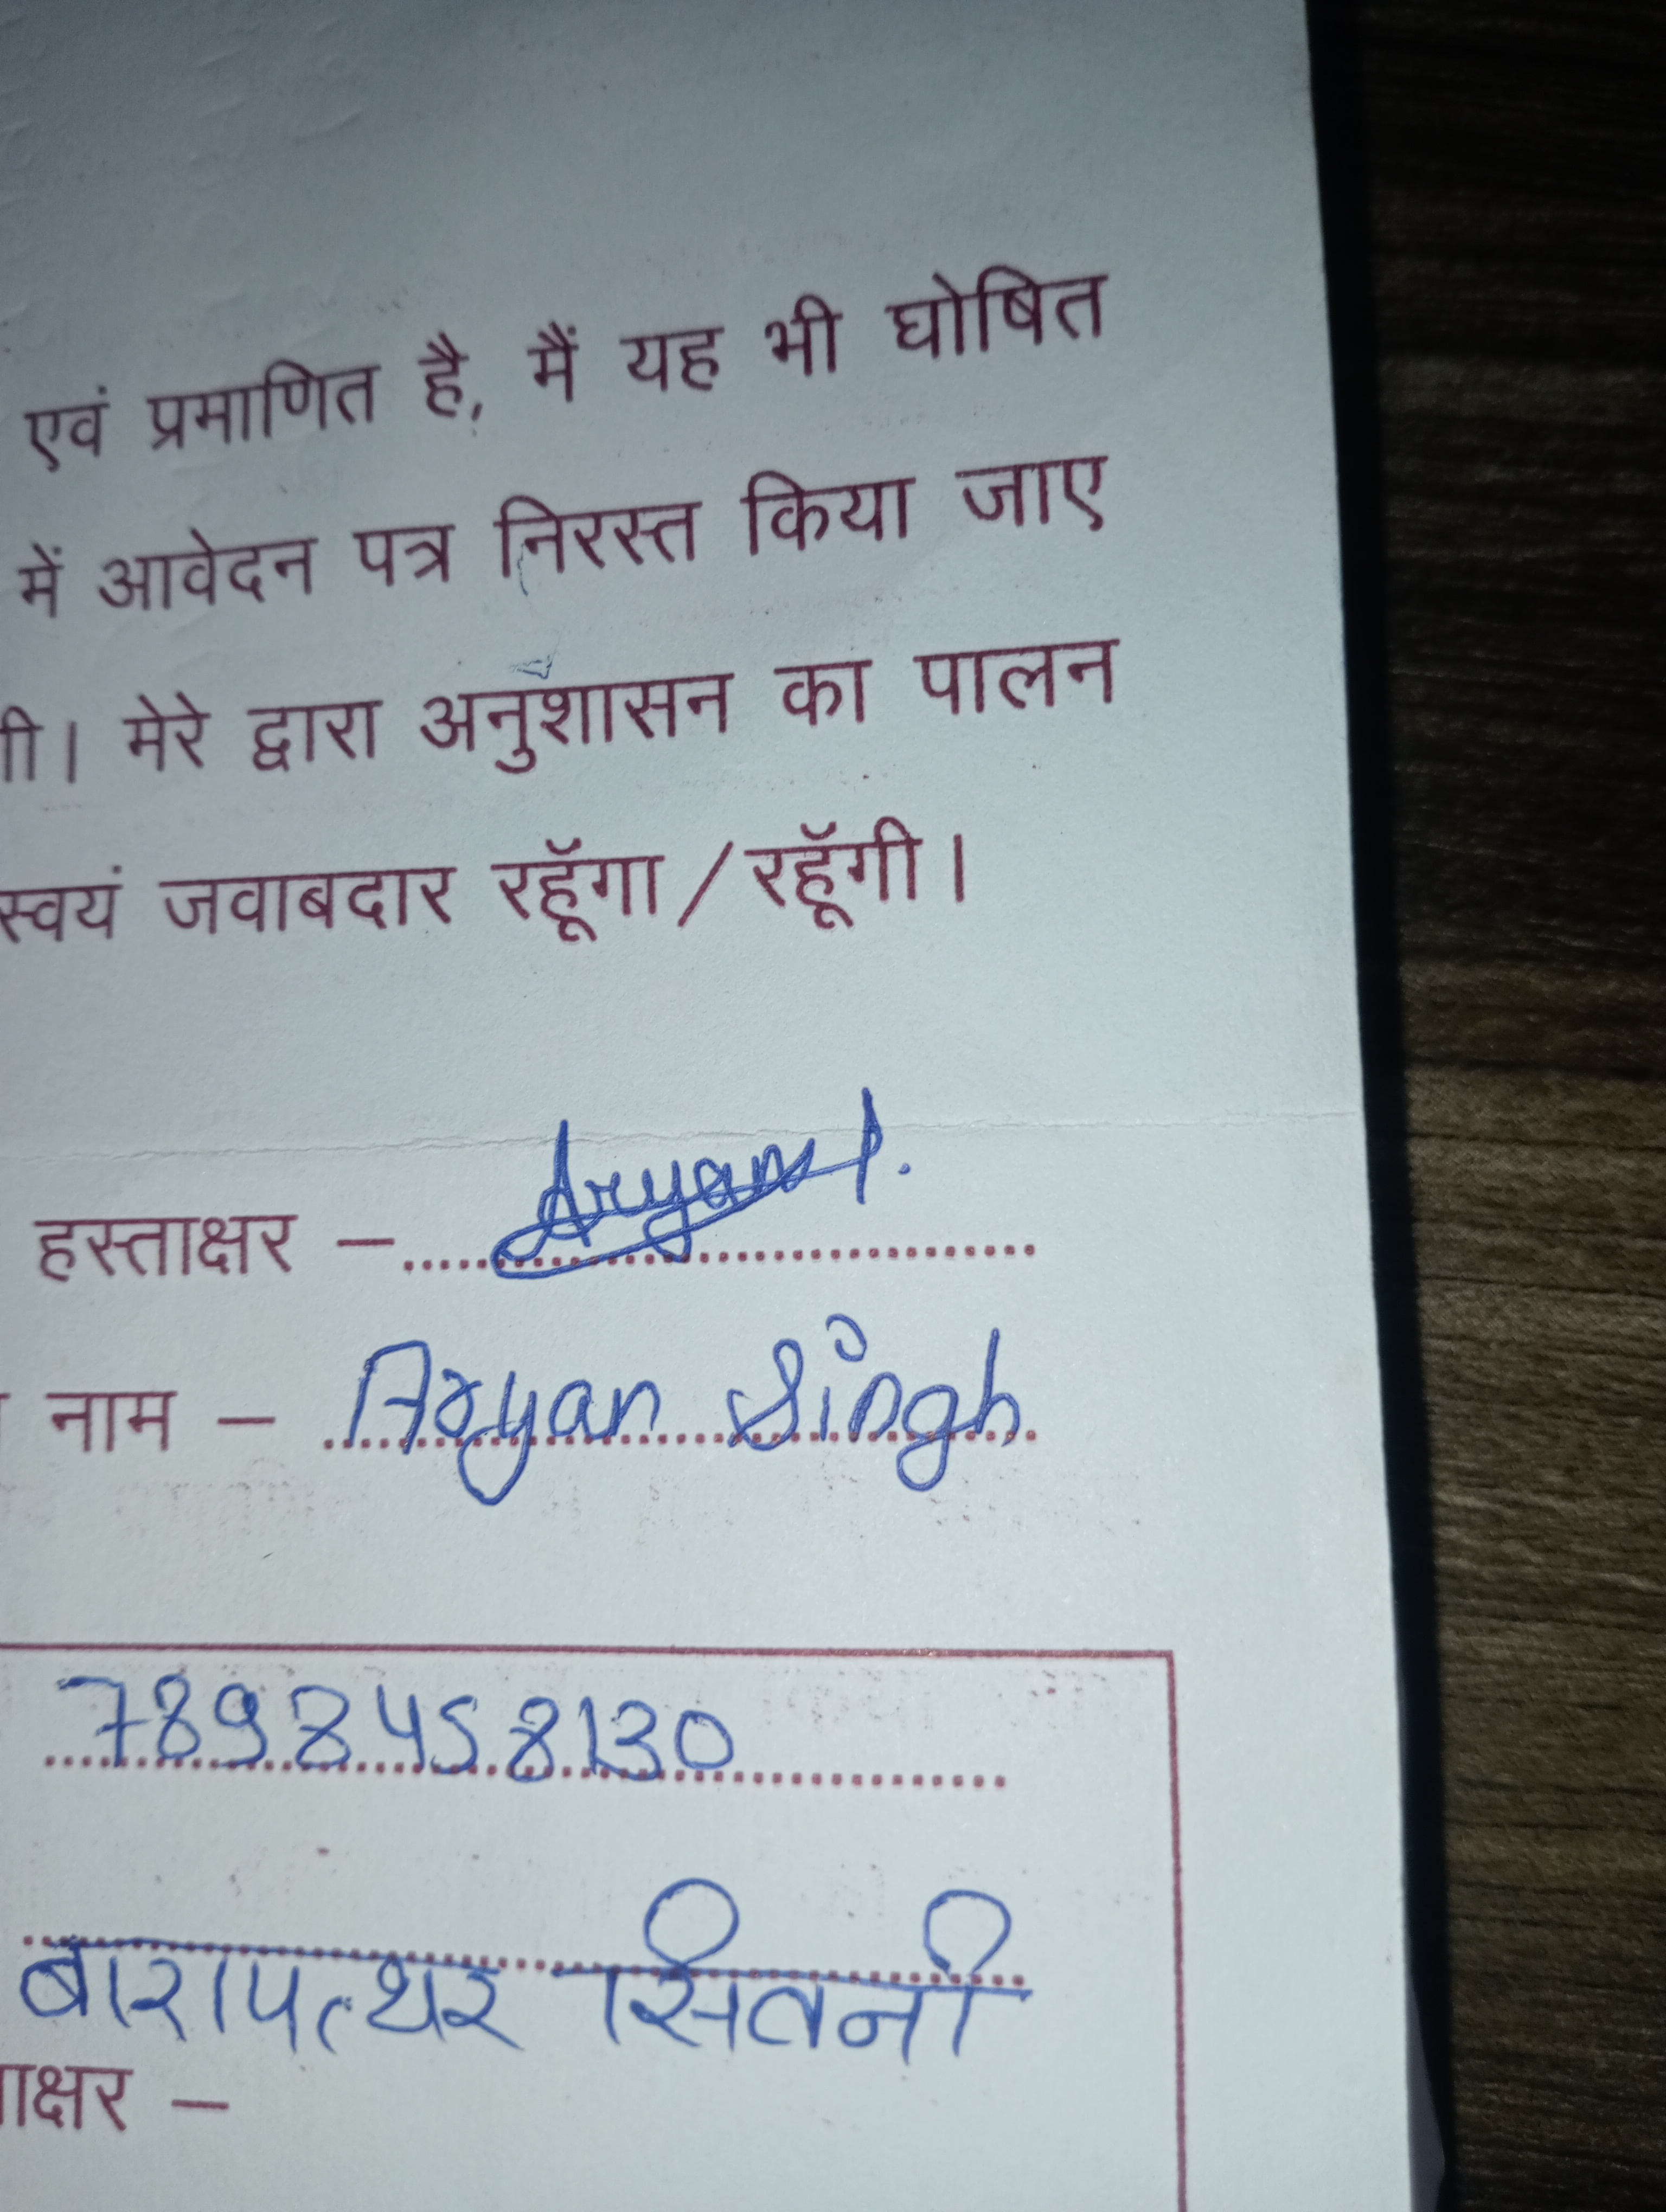 एवं प्रमाणित है, मैं यह भी घोषित
में आवेदन पत्र निरस्त किया जाए
गी। मेरे द्वारा अनुशासन का पालन
स्वयं जवाबदार रहूँगा/रहूँगी।
हस्ताक्षर – Aryan
नाम – Aryan Singh
7898458130
बारापत्थर सिवनी
ाक्षर –